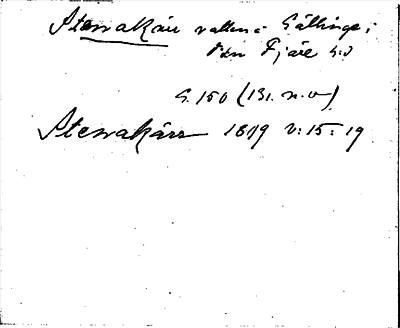 Stenakärr vattena i Gällinge i
Fjäre h:d
S. 150 (131. n. v)
Stenakärr 1809 V: 15: 19